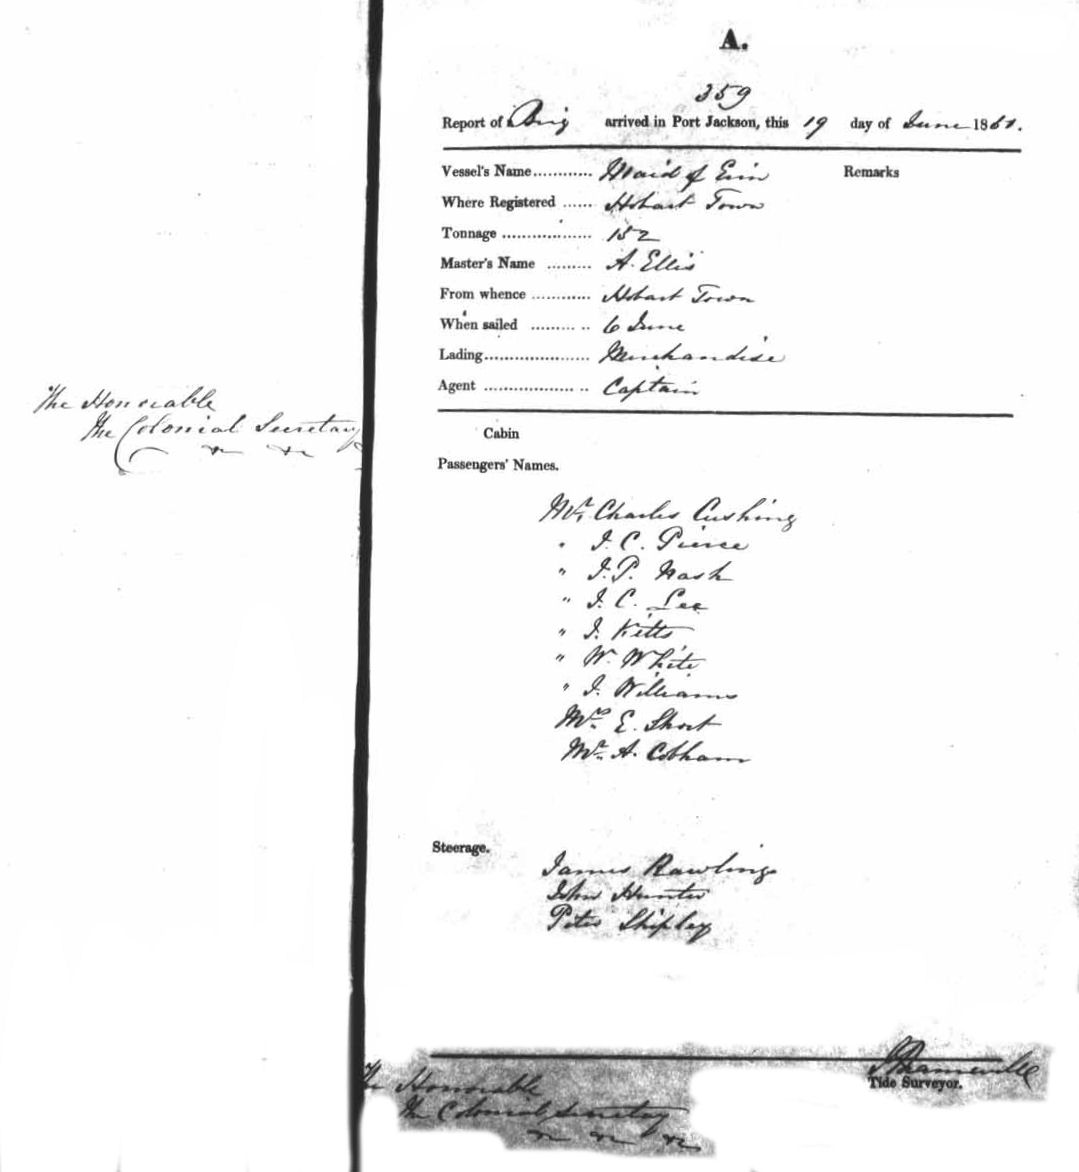 The Honorable
The Colonial Secretary
&c &c
A.
359
Report of Brig arrived in Port Jackson, this 19 day of June 1861.
Vessel's Name............ Maid of Erin Remarks
Where Registered ...... Hobart Town
Tonnage .................. 152
Master's Name ......... A. Ellis
From whence ............ Hobart Town
When sailed ......... .. 6 June
Lading..................... Merchandise
Agent .................. .. Captain
Cabin
Passengers' Names.
Mr. Charles Cushing
" J. C. Pierce
" J. P. Nash
" J. C. Lee
" J. Kitts
" W. White
" J. Williams
Mrs. E. Short
Mr. A. Cobham
Steerage.
James Rawlings
John Hunter
Peter Shipley
Tide Surveyor.
The Honorable
The Colonial Secretary
&c &c &c